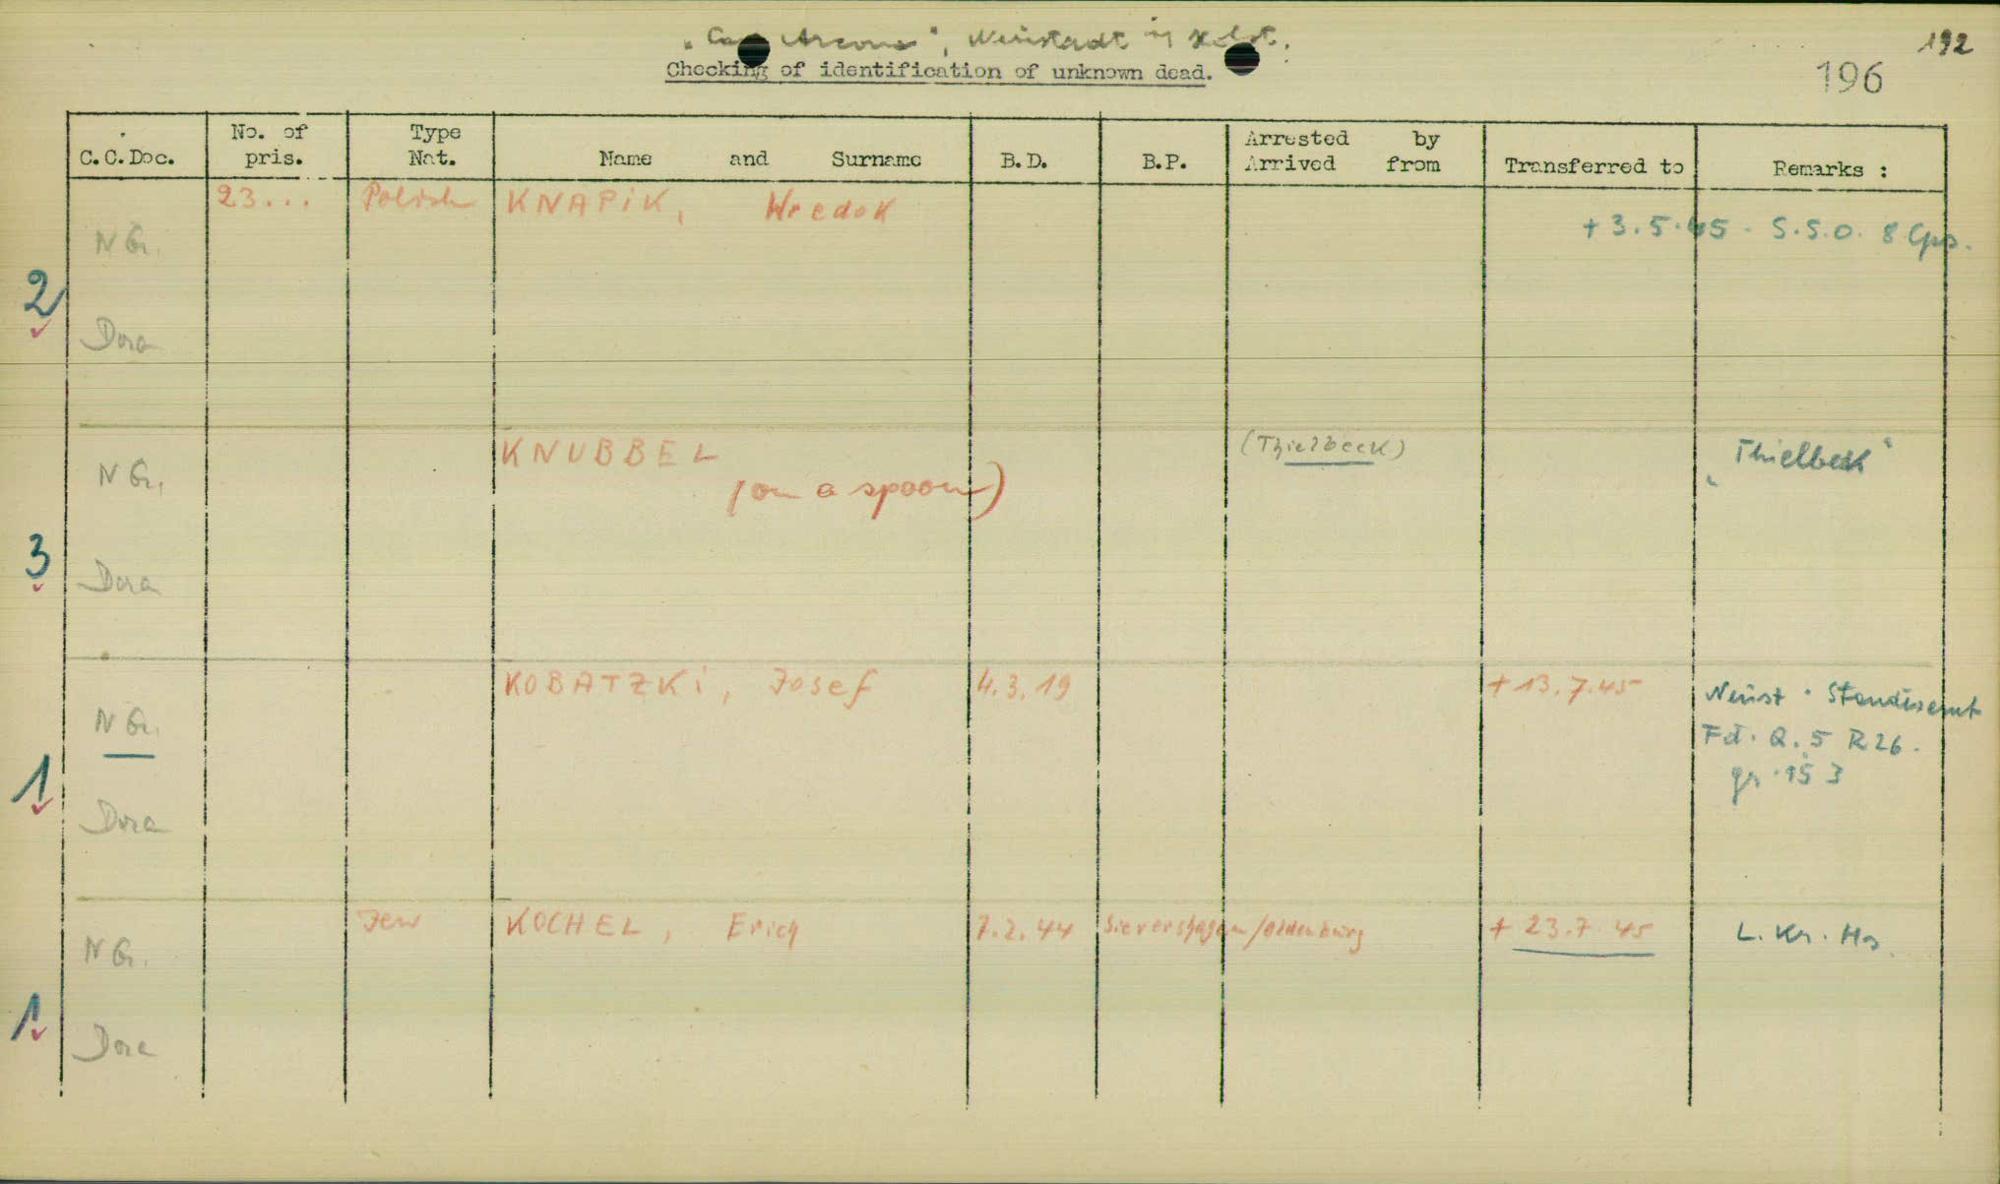 "Cap Arcona", Neustadt in Holst.
Checking of identification of unknown dead.
192
196
C.C.Doc.
No. of pris.
Type Nat.
Name and Surname
B.D.
B.P.
Arrested by
Arrived from
Transferred to
Remarks :
23...
Polish
KNAPIK,
N G.
+ 3.5.45 - S.S.O. 8 Cps.
2
Dora
KNUBBEL
(on a spoon)
(Thielbeck)
"Thielbek"
N G.
3
Dora
KOBATZKi, Josef
4.3.19
+ 13.7.45
Neust. Standesamt
Fd. Q.5 R26.
gr. 153
N G.
1
Dora
Jew
KOCHEL, Erich
7.2.44
Sievershagen/Oldenburg
+ 23.7.45
L. Kr. Hs.
N G.
1
Dora